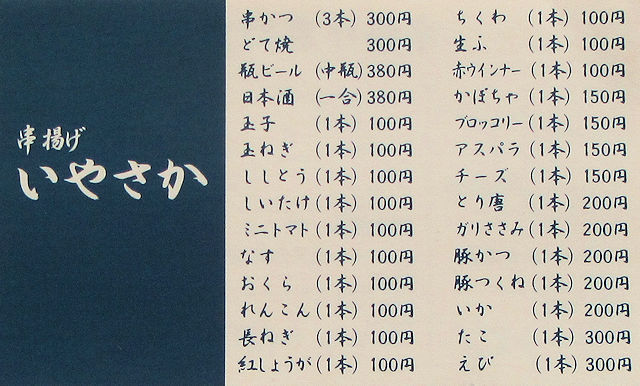 串揚げ
いやさか
串かつ (3本) 300円
どて焼 300円
瓶ビール (中瓶) 380円
日本酒 (一合) 380円
玉子 (1本) 100円
玉ねぎ (1本) 100円
ししとう (1本) 100円
しいたけ (1本) 100円
ミニトマト (1本) 100円
なす (1本) 100円
おくら (1本) 100円
れんこん (1本) 100円
長ねぎ (1本) 100円
紅しょうが (1本) 100円
ちくわ (1本) 100円
生ふ (1本) 100円
赤ウインナー (1本) 100円
かぼちゃ (1本) 150円
ブロッコリー (1本) 150円
アスパラ (1本) 150円
チーズ (1本) 150円
とり唐 (1本) 200円
ガリささみ (1本) 200円
豚かつ (1本) 200円
豚つくね (1本) 200円
いか (1本) 200円
たこ (1本) 300円
えび (1本) 300円